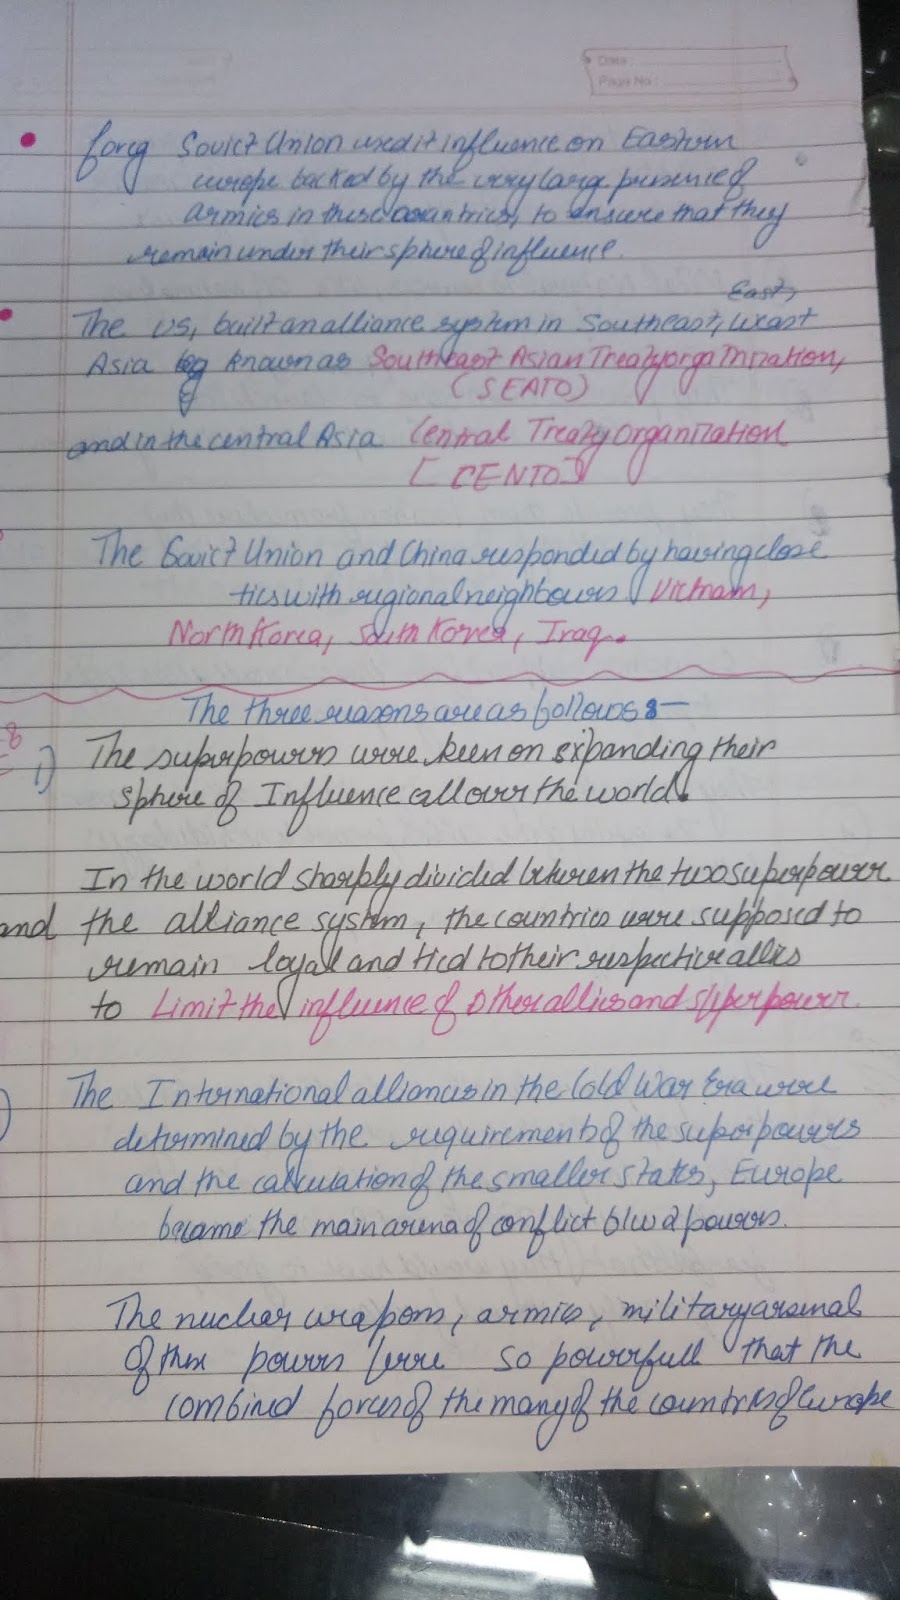 Date :
Page No :
Soviet Union used it influence on Eastern
europe backed by the very large presence of
armies in these countries, to ensure that they
remain under their sphere of influence.
East,
The US, built an alliance system in Southeast,
Asia known as Southeast Asian Treaty orga nization,
(SEATO)
and in the central Asia Central Treaty organization
[CENTO]
The Soviet Union and China responded by having close
ties with regional neighbours Vietnam,
North Korea, South Korea, Iraq.
The three reasons are as follows :-
i) The superpowers were keen on expanding their
sphere of Influence all over the world.
In the world sharply divided between the two superpower
and the alliance system, the countries were supposed to
remain loyal and tied to their respective allies
to Limit the influence of other allies and superpower.
The International alliances in the Cold War Era were
determined by the requirement of the superpowers
and the calculation of the smaller states, Europe
became the main arena of conflict b/w 2 powers.
The nuclear weapons, armies, military arsenal
of these powers were so powerfull that the
combined forces of the many of the countries of europe